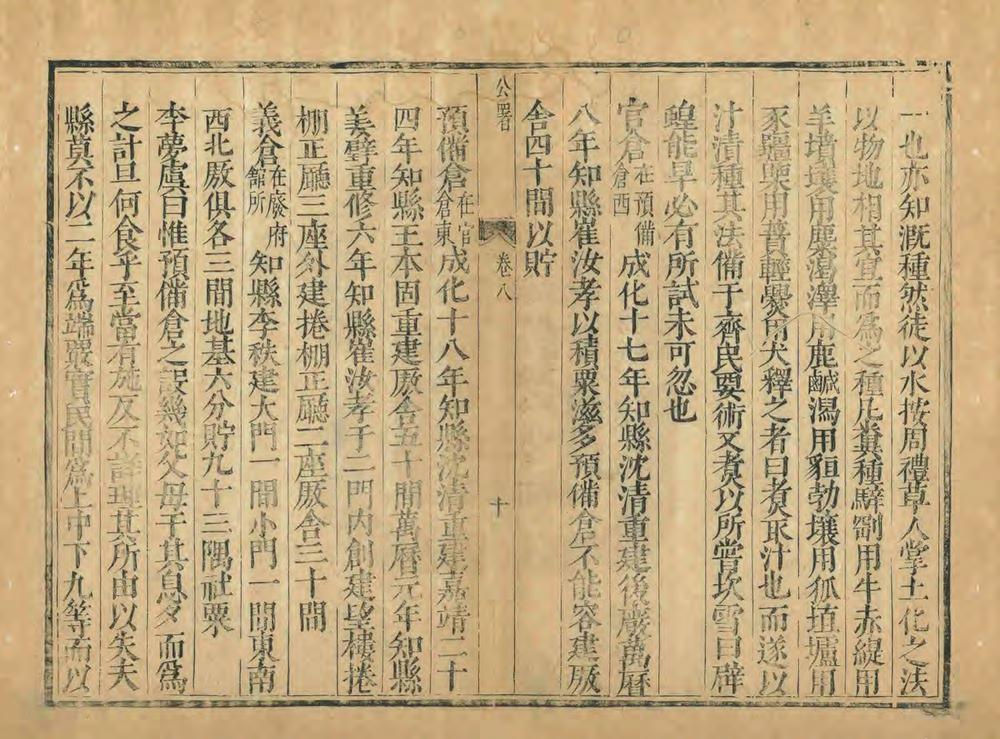 一也亦知溉種然徒以水按周禮草人掌土化之法
以物地相其宜而爲之種凡糞種騂剛用牛赤緹用
羊墳壤用麋渴澤用鹿鹹潟用貆勃壤用狐埴壚用
豕彊㯺用蕡輕㶿用犬釋之者曰煑取汁也而遂以
汁漬種其法備于齊民要術又煑以所嘗坎雪曰辟
蝗能旱必有所試未可忽也
官倉在預備倉西成化十七年知縣沈清重建後廢萬曆
八年知縣崔汝孝以積粟滋多預備倉不能容建厫
舍四十間以貯
公署
卷八
十
預備倉在官倉東成化十八年知縣沈清重建嘉靖二十
四年知縣王本固重建厫舍五十間萬曆元年知縣
姜璧重修六年知縣崔汝孝于二門内創建望樓捲
棚正廳三座外建捲棚正廳二座厫舍三十間
義倉在廢府館所知縣李秩建大門一間小門一間東南
西北厫俱各三間地基六分貯九十三隅社粟
李夢虞曰惟預備倉之設幾如父母于其息女而爲
之計旦何食乎至當有施及不詳理其所由以失夫
縣莫不以二年爲端嚴實民間爲上中下九等而以